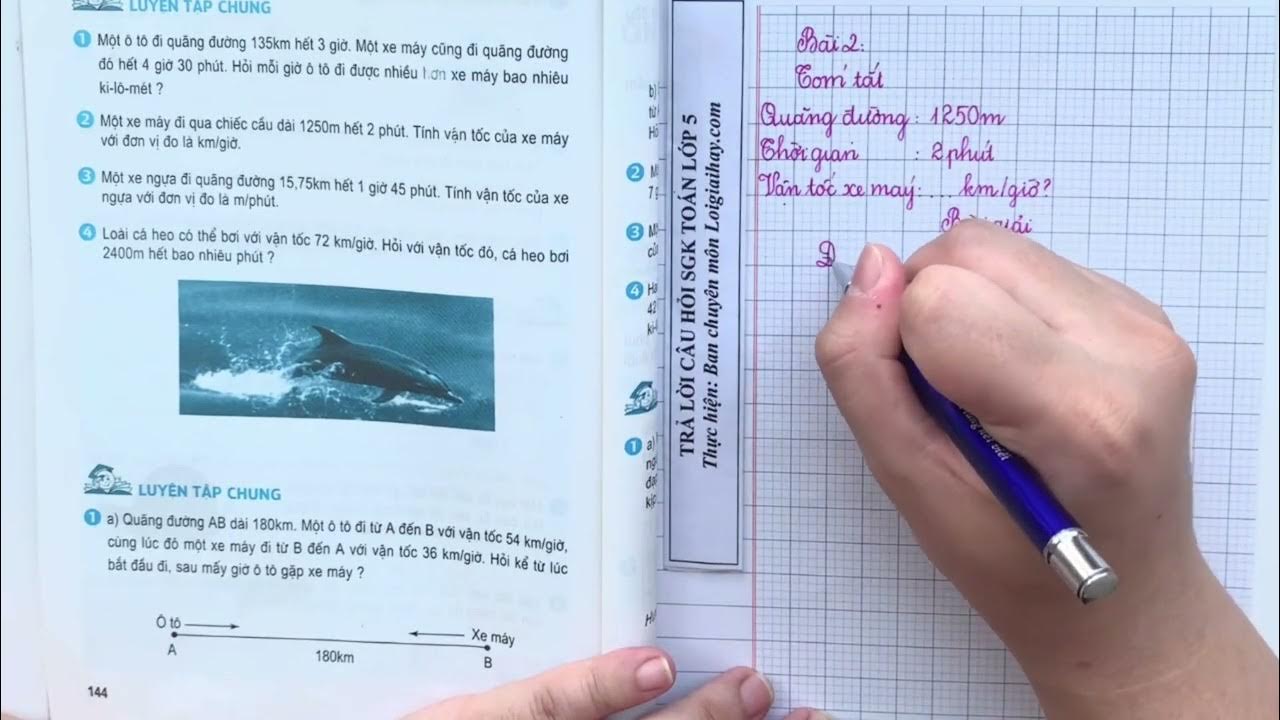 LUYỆN TẬP CHUNG
1 Một ô tô đi quãng đường 135km hết 3 giờ. Một xe máy cũng đi quãng đường
đó hết 4 giờ 30 phút. Hỏi mỗi giờ ô tô đi được nhiều hơn xe máy bao nhiêu
ki-lô-mét ?
2 Một xe máy đi qua chiếc cầu dài 1250m hết 2 phút. Tính vận tốc của xe máy
với đơn vị đo là km/giờ.
3 Một xe ngựa đi quãng đường 15,75km hết 1 giờ 45 phút. Tính vận tốc của xe
ngựa với đơn vị đo là m/phút.
4 Loài cá heo có thể bơi với vận tốc 72 km/giờ. Hỏi với vận tốc đó, cá heo bơi
2400m hết bao nhiêu phút ?
LUYỆN TẬP CHUNG
1 a) Quãng đường AB dài 180km. Một ô tô đi từ A đến B với vận tốc 54 km/giờ,
cùng lúc đó một xe máy đi từ B đến A với vận tốc 36 km/giờ. Hỏi kể từ lúc
bắt đầu đi, sau mấy giờ ô tô gặp xe máy ?
Ô tô
Xe máy
A
180km
B
144
b)
từ
2
7
3
4
42
1 a)
TRẢ LỜI CÂU HỎI SGK TOÁN LỚP 5
Thực hiện: Ban chuyên môn Loigiaihay.com
Bài 2:
Tóm tắt
Quãng đường: 1250m
Thời gian : 2 phút
Vận tốc xe máy: ... km/giờ?
giải